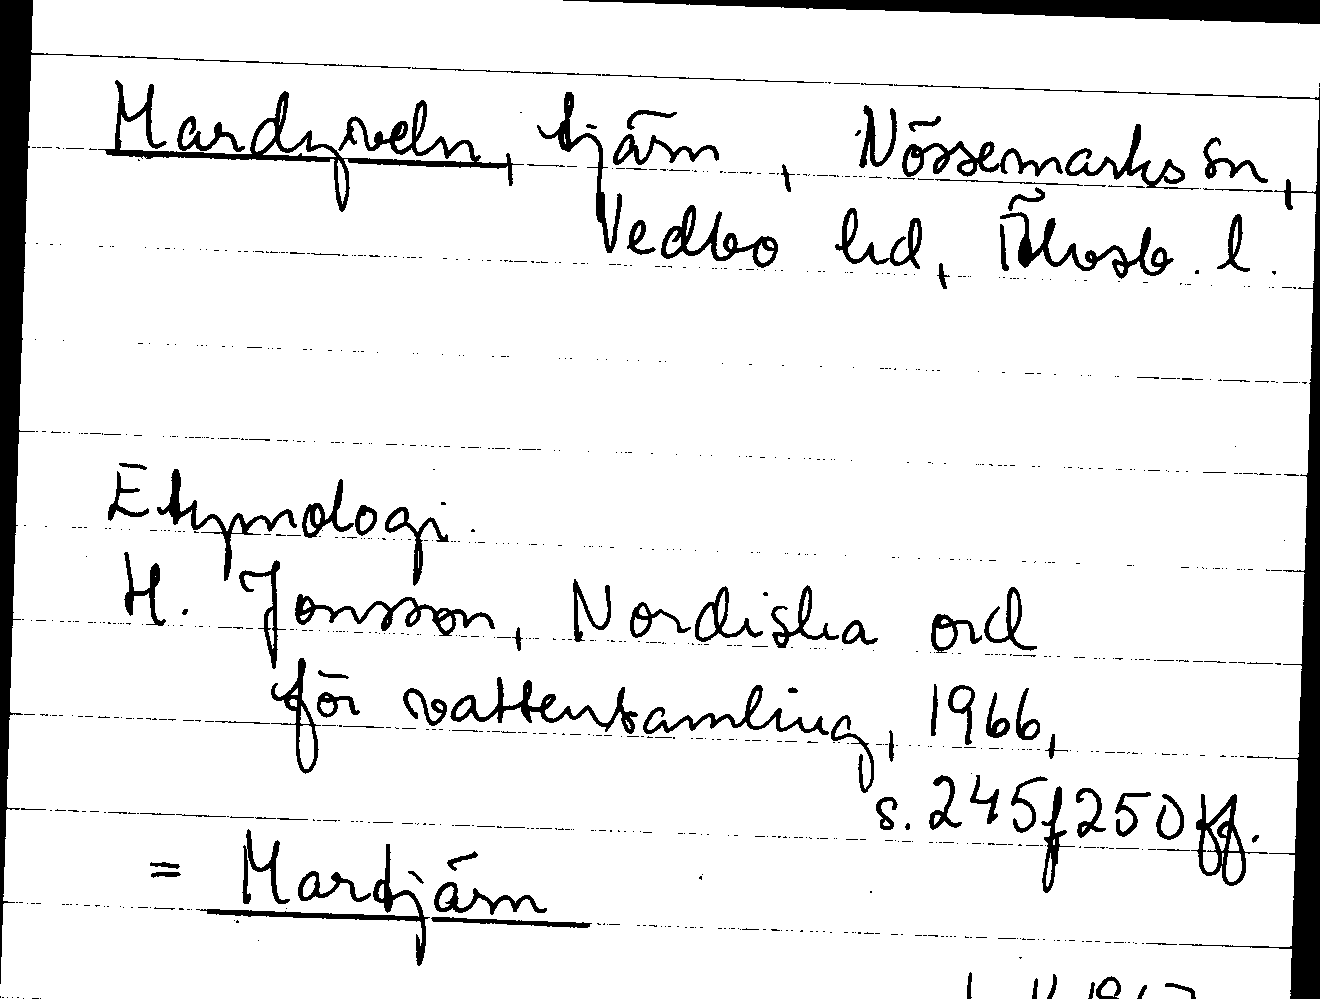 Mardyveln, tjärn, Nössemarks sn,
Vedbo hd, Älvsb. l.
Etymologi.
H. Jonsson, Nordiska ord
för vattensamling, 1966,
s. 245f 250 ff.
= Mardtjärn